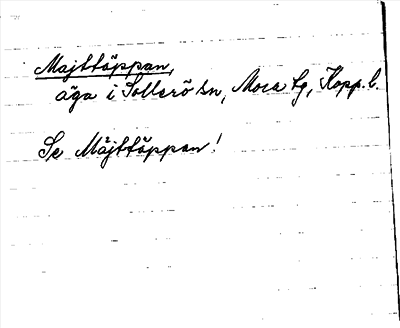 Majttäppan,
äga i Sollerö sn, Mora tg, Kopp. l.
Se Måjttäppan!